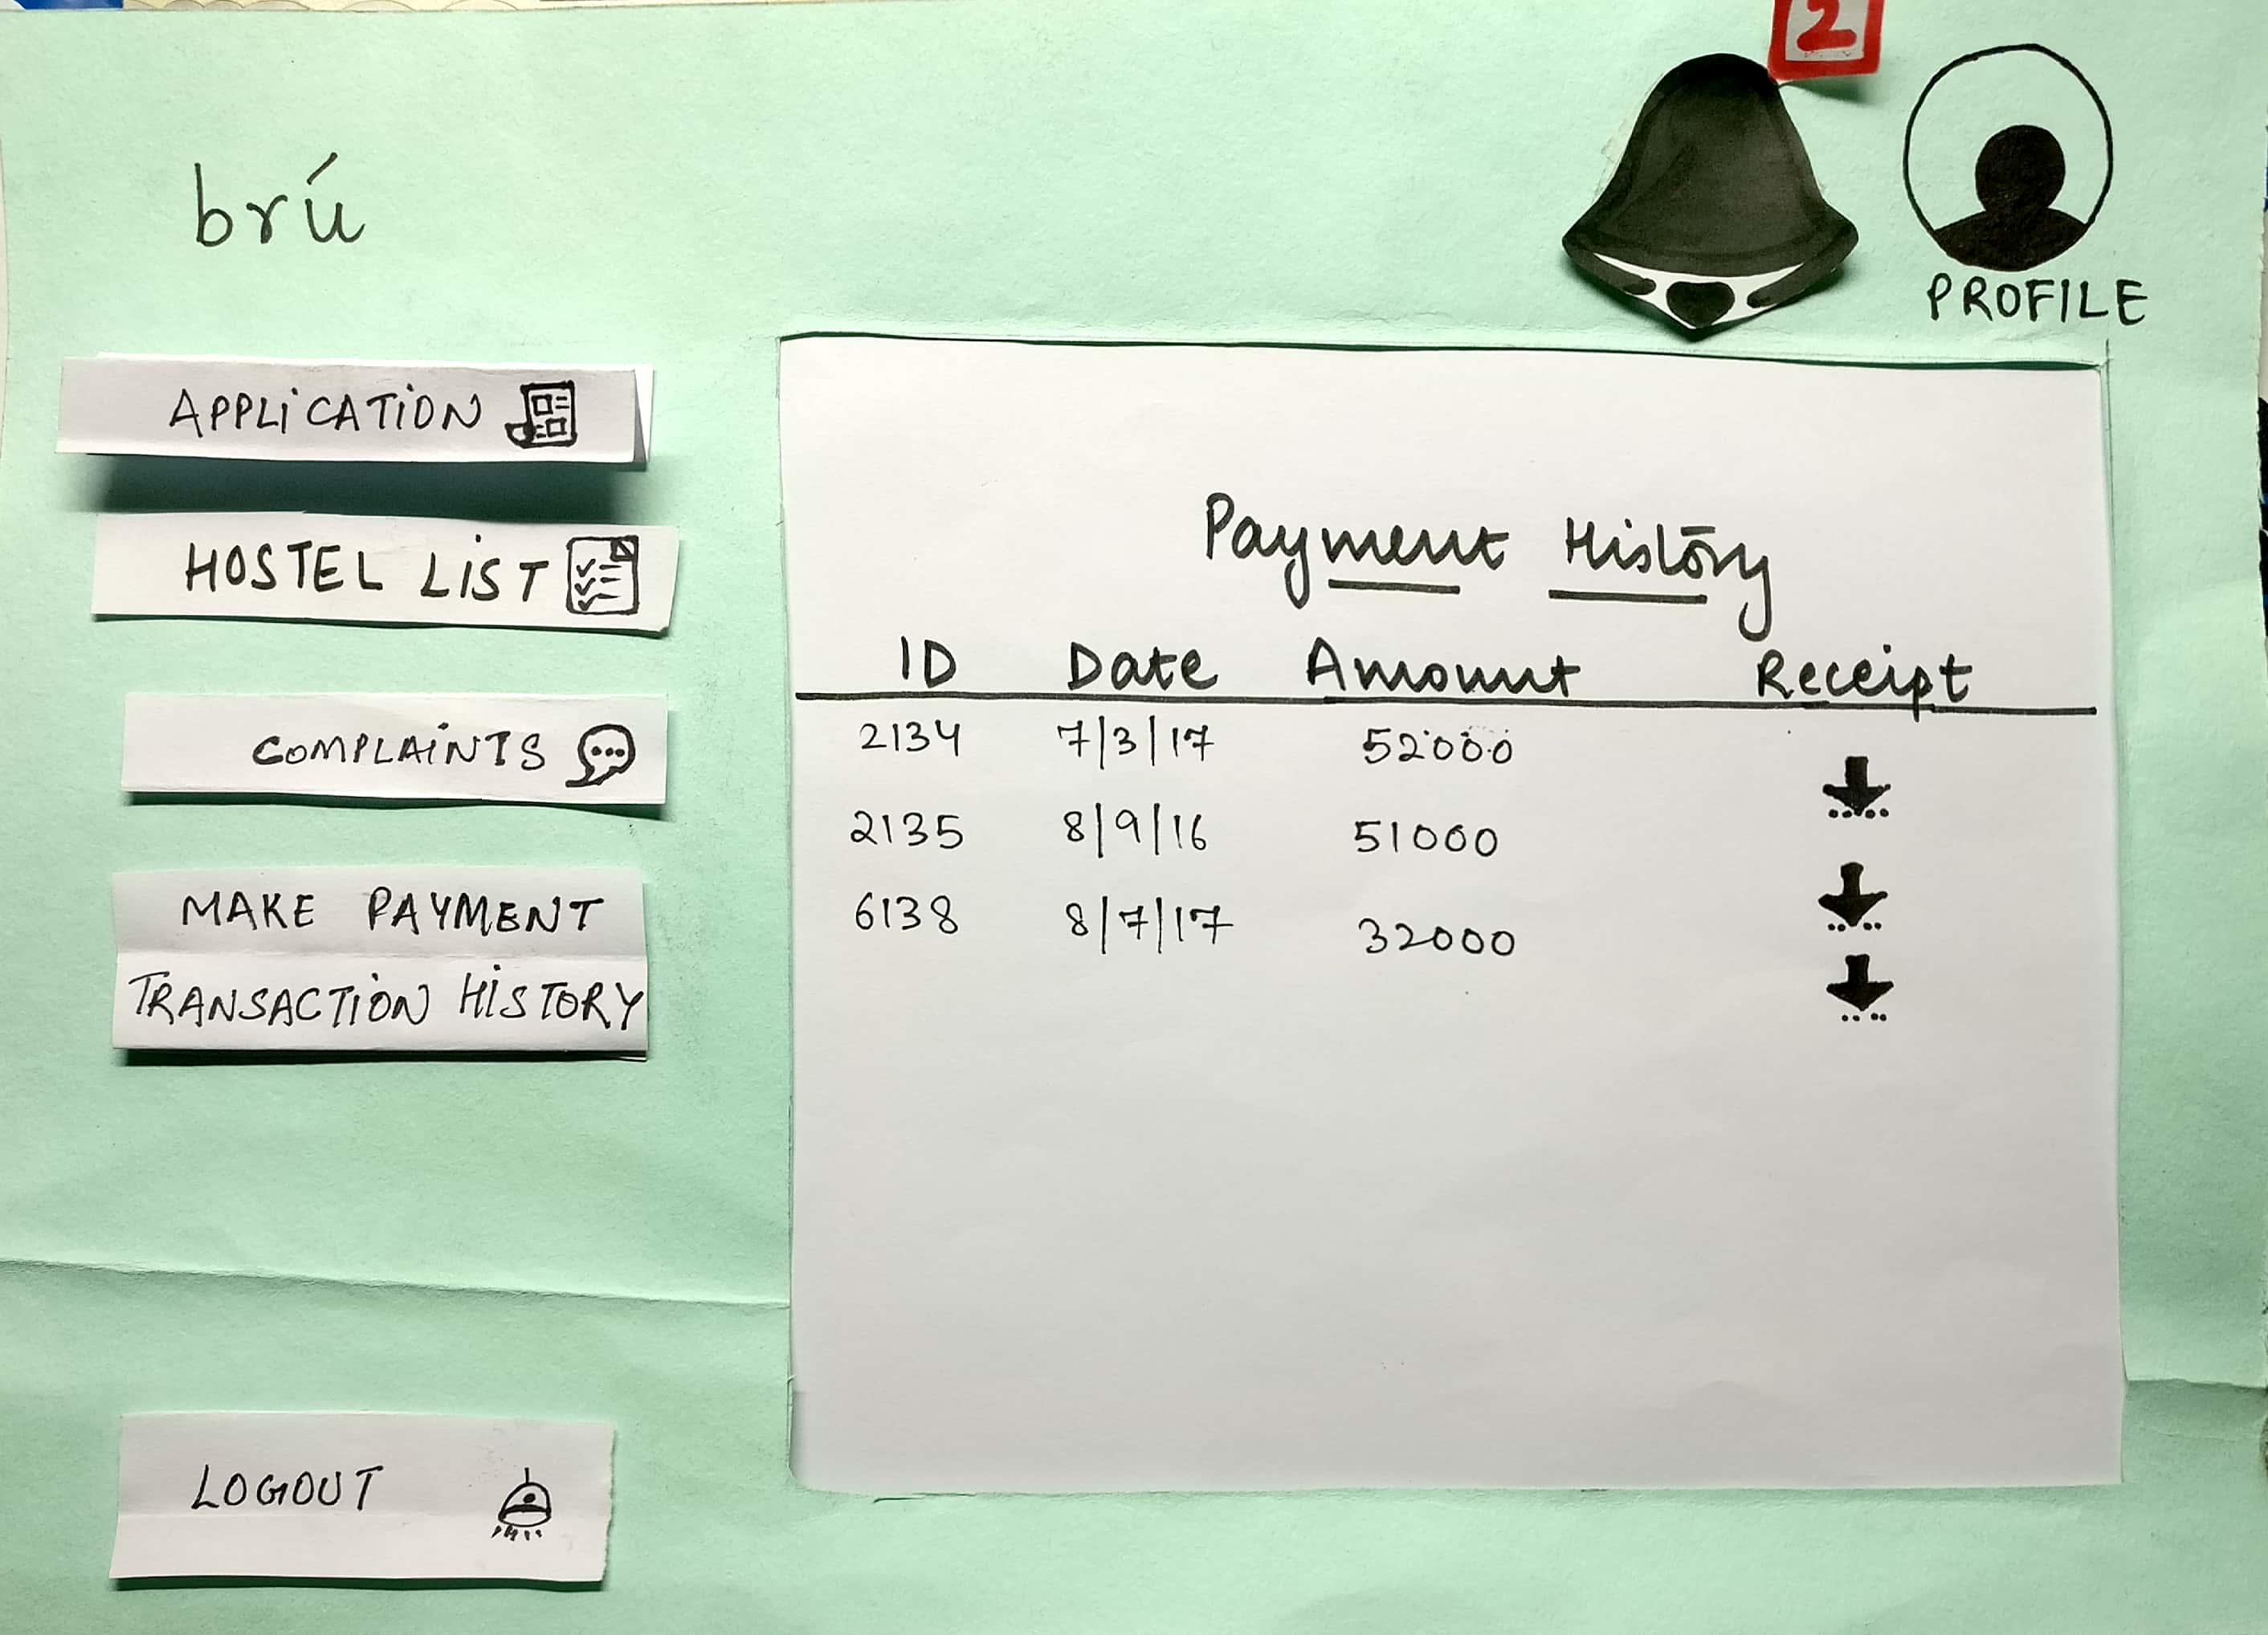 2
brú
PROFILE
APPLICATION
HOSTEL LIST
COMPLAINTS
MAKE PAYMENT
TRANSACTION HISTORY
LOGOUT
Payment History
ID Date Amount Receipt
2134 7/3/17 52000
2135 8/9/16 51000
6138 8/7/17 32000